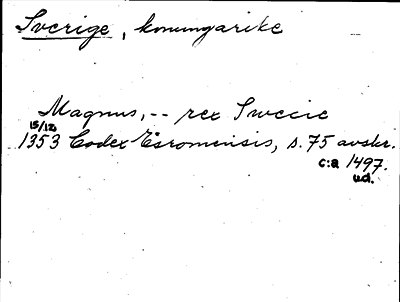 Sverige, konungarike
Magnus, -- rex Swecie
15/12
1353 Codex Esromensis, s. 75 avskr.
c:a 1497.
ud.